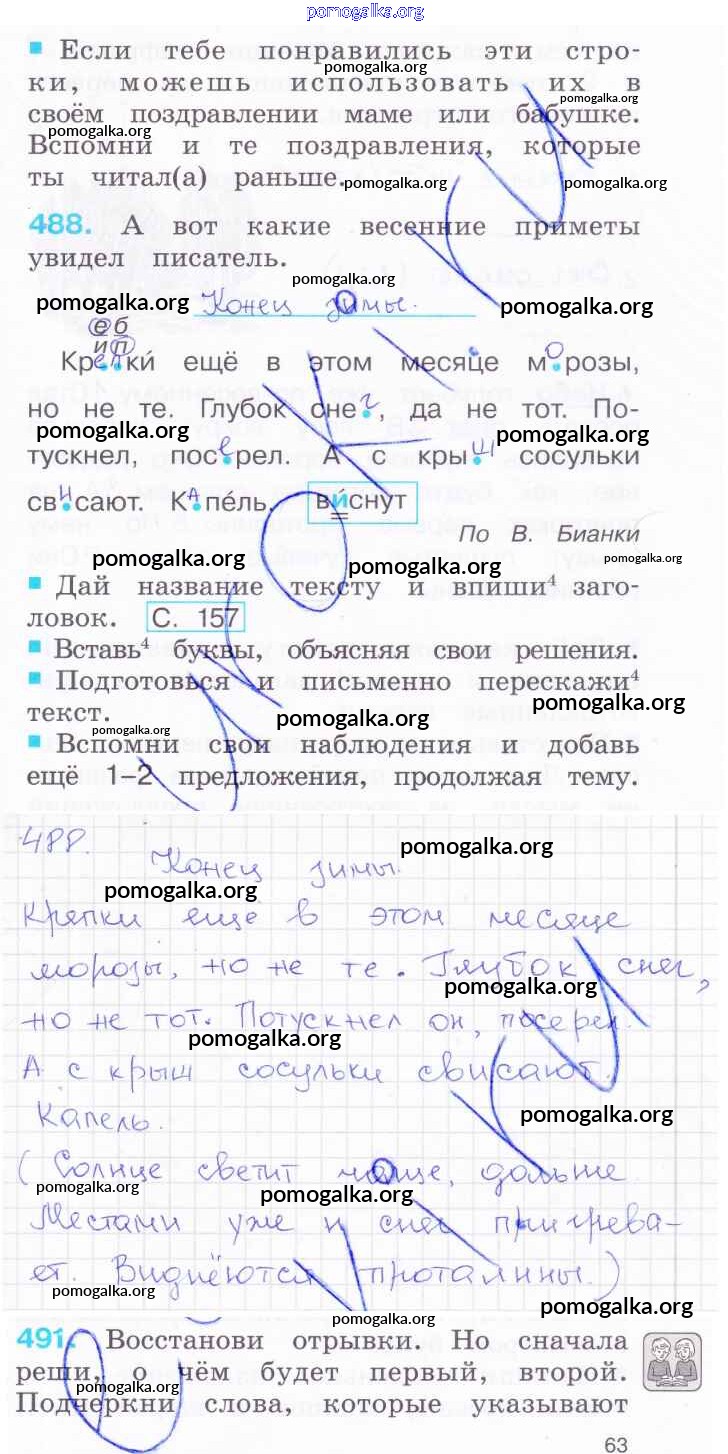 pomogalka.org
Если тебе понравились эти стро-
pomogalka.org pomogalka.org
ки, можешь использовать их в
pomogalka.org
своём поздравлении маме или бабушке.
pomogalka.org
Вспомни и те поздравления, которые
ты читал(а) раньше.
pomogalka.org pomogalka.org
488. А вот какие весенние приметы
увидел писатель.
pomogalka.org
pomogalka.org Конец зимы. pomogalka.org
е б
и п
Крепки́ ещё в этом месяце морозы,
но не те. Глубок снег, да не тот. По-
pomogalka.org pomogalka.org
тускнел, посерел. А с крыш сосульки
свисают. Капе́ль. ви́снут
pomogalka.org
По В. Бианки
pomogalka.org pomogalka.org
Дай название тексту и впиши⁴ заго-
ловок. С. 157
pomogalka.org
Вставь⁴ буквы, объясняя свои решения.
Подготовься и письменно перескажи⁴
pomogalka.org
текст.
pomogalka.org
pomogalka.org
Вспомни свои наблюдения и добавь
ещё 1–2 предложения, продолжая тему.
488.
Конец зимы.
pomogalka.org
pomogalka.org
Крепки еще в этом месяце
морозы, но не те. Глубок снег,
pomogalka.org
но не тот. Потускнел он, посерел.
pomogalka.org
А с крыш сосульки свисают.
Капель.
pomogalka.org
(Солнце светит чаще, дольше.
pomogalka.org pomogalka.org
Местами уже и снег пригрева-
pomogalka.org
ет. Виднеются проталины.)
pomogalka.org pomogalka.org
pomogalka.org
491. Восстанови отрывки. Но сначала
реши, о чём будет первый, второй.
pomogalka.org pomogalka.org
Подчеркни слова, которые указывают
63